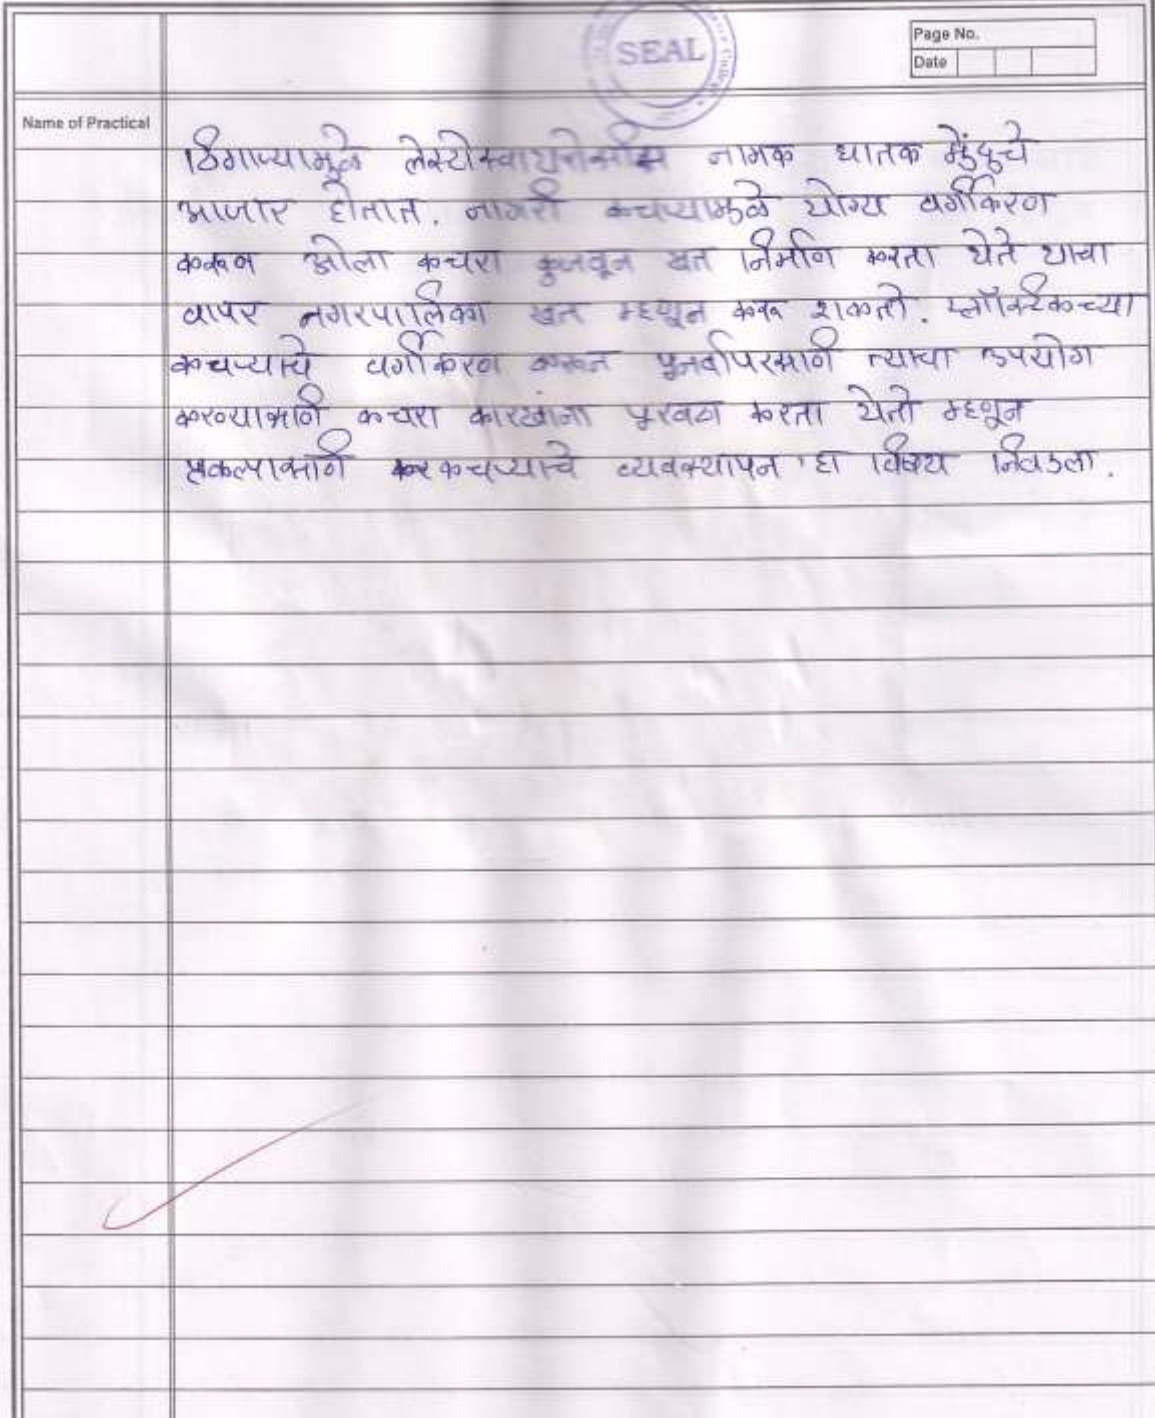 SEAL
Page No.
Date
Name of Practical
ढिगाऱ्यामुळे लेस्टोस्पायरोसीस नामक घातक मेंदुचे
आजार होतात. नागरी कचऱ्यामुळे योग्य वर्गीकरण
करून ओला कचरा कुजवून खत निर्माण करता येते याचा
वापर नगरपालिका खत म्हणून करू शकतो. प्लॉस्टिकच्या
कचऱ्याचे वर्गीकरण करून पुनर्वापरसाठी त्याचा उपयोग
करण्यासाठी कचरा कारखाना पुरवठा करता येतो म्हणून
प्रकल्पासाठी कचऱ्याचे व्यवस्थापन 'हा विषय निवडला.